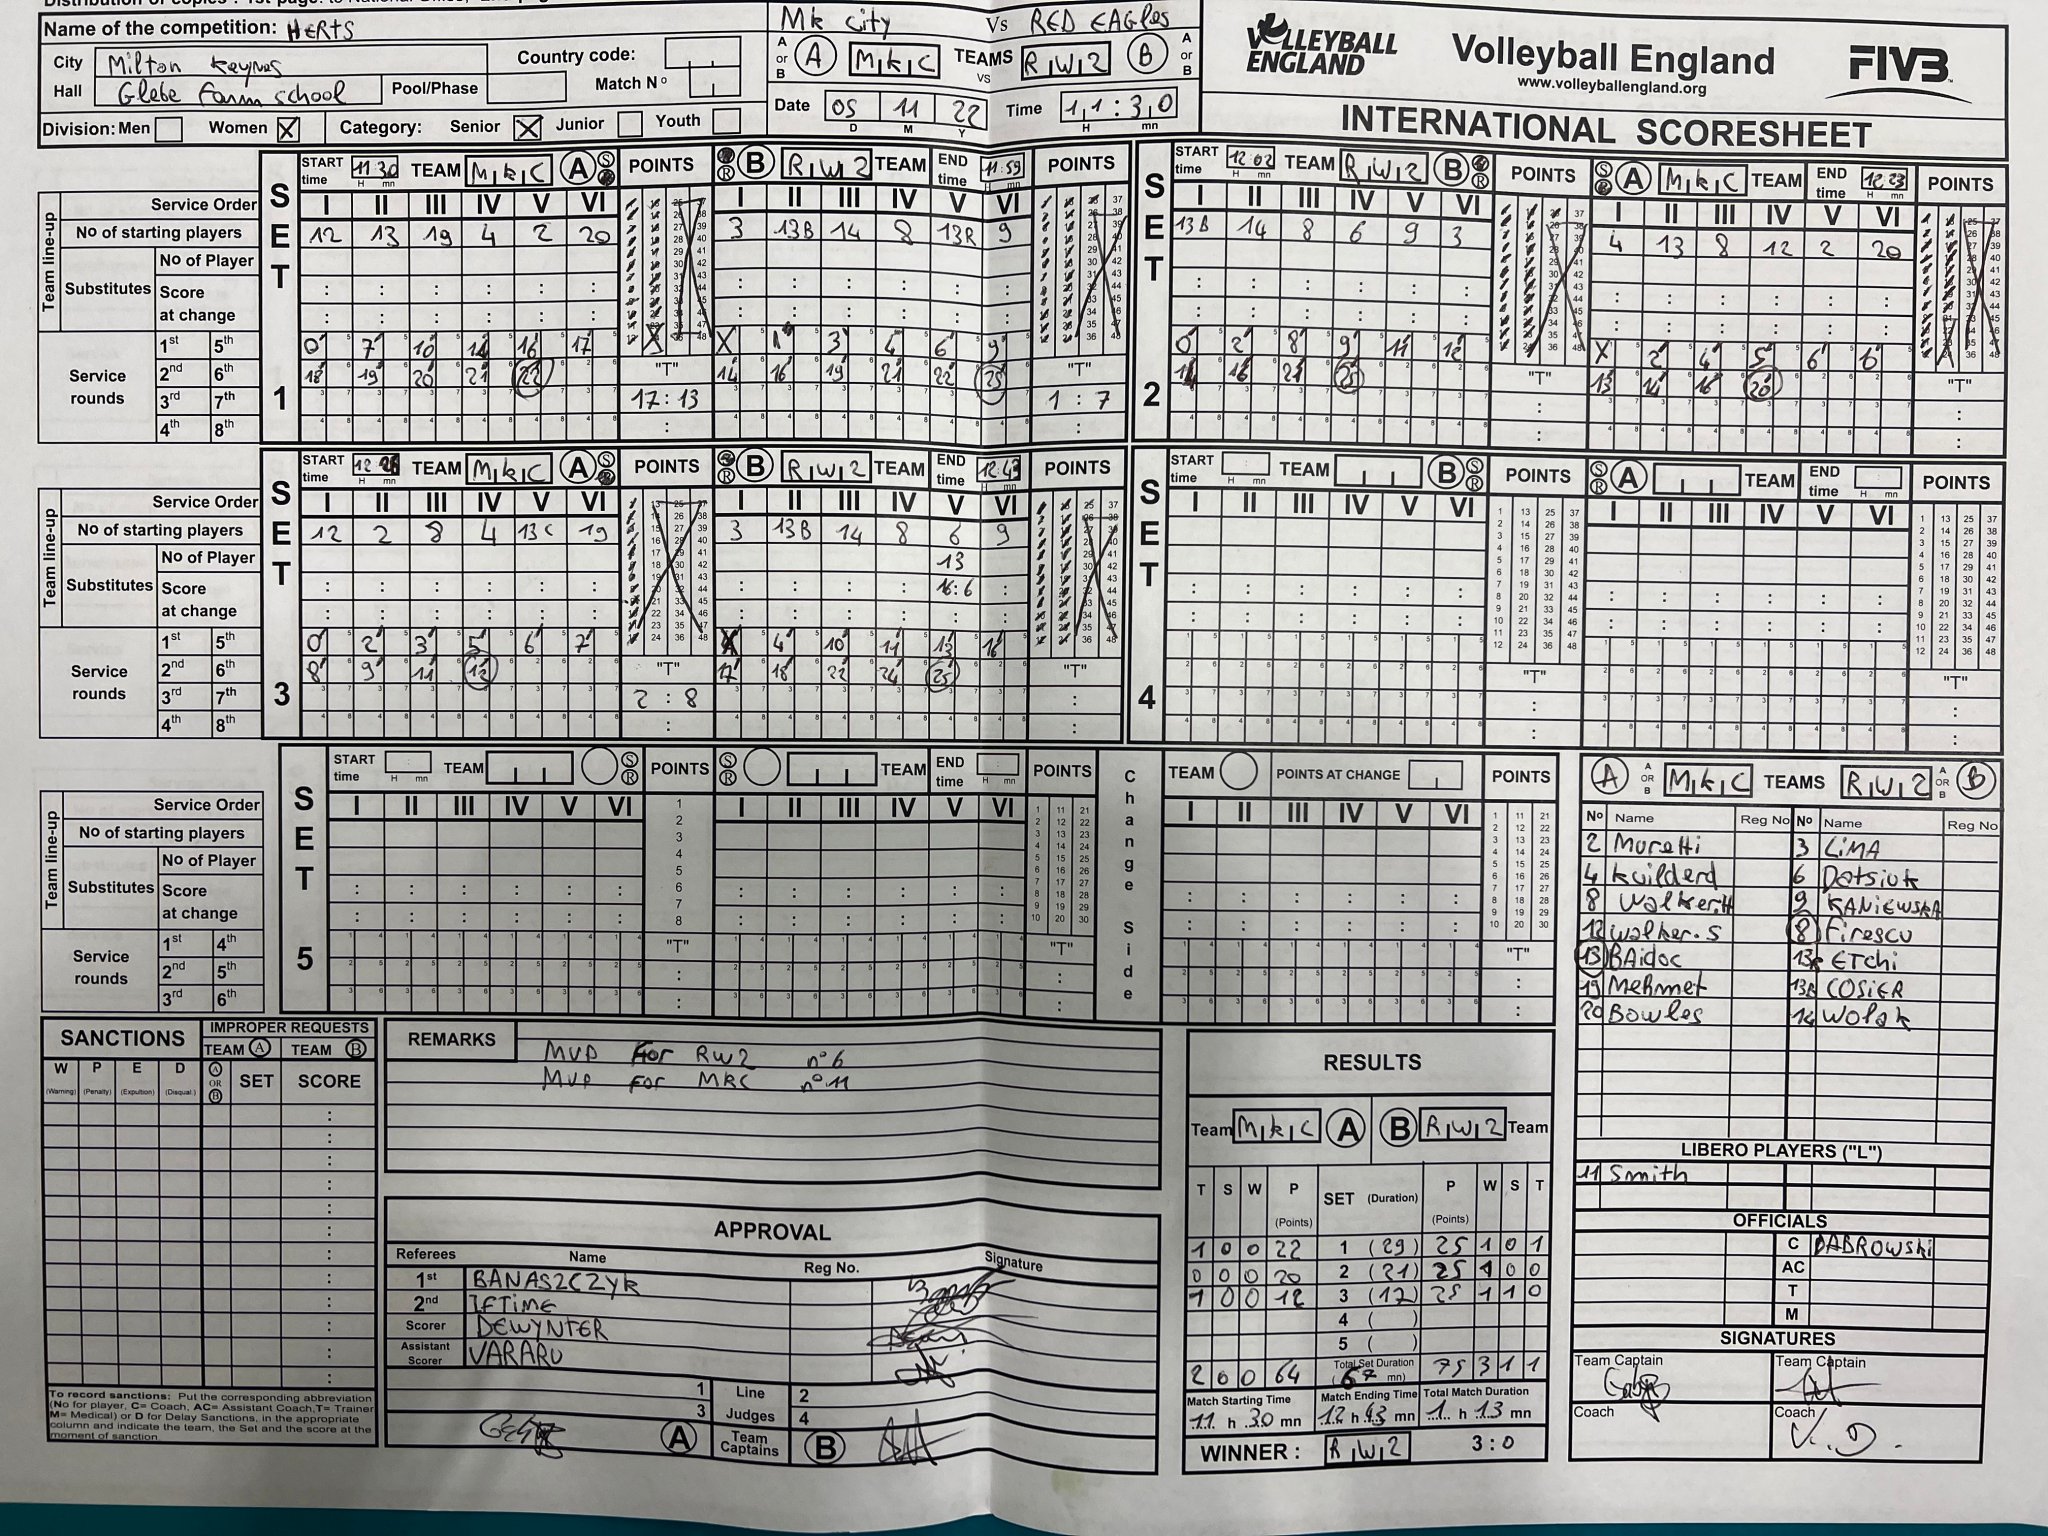 Name of the competition: HERTS
City Milton Keynes Country code:
Hall Glebe Farm school Pool/Phase Match Nº
Division: Men Women X Category: Senior X Junior Youth
Mk City Vs RED EAGles
A or B A MKC TEAMS vs RW2 B A or B
Date 05 11 22 Time 11:30
D M Y H mn
VOLLEYBALL ENGLAND Volleyball England FIVB
www.volleyballengland.org
INTERNATIONAL SCORESHEET
SET 1
START time 11:30 TEAM MKC A S R POINTS S R B RW2 TEAM END time 11:59 POINTS
Service Order I II III IV V VI I II III IV V VI
No of starting players 12 13 19 4 2 20 3 13B 14 8 13R 9
Team line-up
Substitutes No of Player
Score at change
Service rounds
1st 5th 0 7 10 14 16 17 X 1 3 4 6 9
2nd 6th 18 19 20 21 22 14 16 19 21 22 25
3rd 7th "T" 17:13 "T" 1:7
4th 8th
SET 2
START time 12:02 TEAM RW2 B S R POINTS S R A MKC TEAM END time 12:23 POINTS
I II III IV V VI I II III IV V VI
13B 14 8 6 9 3 4 13 8 12 2 20
0 2 8 9 11 12 X 2 4 5 6 6
14 16 21 25 13 14 16 20
"T" "T"
SET 3
START time 12:26 TEAM MKC A S R POINTS S R B RW2 TEAM END time 12:43 POINTS
Service Order I II III IV V VI I II III IV V VI
No of starting players 12 2 8 4 13C 19 3 13B 14 8 6 9
Team line-up
Substitutes No of Player 13
Score at change 16:6
Service rounds
1st 5th 0 2 3 5 6 7 X 4 10 11 13 16
2nd 6th 8 9 11 12 17 18 22 24 25
3rd 7th "T" 2:8 "T"
4th 8th
SET 4
START time TEAM B S R POINTS S R A TEAM END time POINTS
I II III IV V VI I II III IV V VI
"T" "T"
SET 5
START time TEAM S R POINTS S R TEAM END time POINTS Change Side TEAM POINTS AT CHANGE POINTS
Service Order I II III IV V VI I II III IV V VI I II III IV V VI
No of starting players
Team line-up
Substitutes No of Player
Score at change
Service rounds
1st 4th "T" "T" "T"
2nd 5th
3rd 6th
A A OR B MKC TEAMS RW2 A OR B B
Nº Name Reg No Nº Name Reg No
2 Moretti 3 LiMA
4 kuilderd 6 Datsiuk
8 Walker.H 9 KANIEWSKA
12 walker.S 8 Firescu
13 BAidoc 13R ETchi
19 Mehmet 13B COSIER
20 Bowles 14 Wolak
LIBERO PLAYERS ("L")
11 Smith
OFFICIALS
C DABROWSKi
AC
T
M
SIGNATURES
Team Captain Team Captain
Coach Coach
SANCTIONS IMPROPER REQUESTS
TEAM A TEAM B
W P E D A OR B SET SCORE
(Warning) (Penalty) (Expultion) (Disqual.)
To record sanctions: Put the corresponding abbreviation
(No for player, C= Coach, AC= Assistant Coach,T= Trainer
M= Medical) or D for Delay Sanctions, in the appropriate
column and indicate the team, the Set and the score at the
moment of sanction.
REMARKS
MVP For RW2 nº6
MVP For MKC nº11
APPROVAL
Referees Name Reg No. Signature
1st BANASZCZYK
2nd IFTIME
Scorer DEWYNTER
Assistant Scorer VARARU
1 Line Judges 2
3 4
A Team Captains B
RESULTS
Team MKC A B RW2 Team
T S W P (Points) SET (Duration) P (Points) W S T
1 0 0 22 1 (29) 25 1 0 1
0 0 0 20 2 (21) 25 1 0 0
1 0 0 12 3 (17) 25 1 1 0
4 ( )
5 ( )
2 0 0 64 Total Set Duration (67 mn) 75 3 1 1
Match Starting Time 11 h 30 mn
Match Ending Time 12 h 43 mn
Total Match Duration 1 h 13 mn
WINNER : RW2 3:0